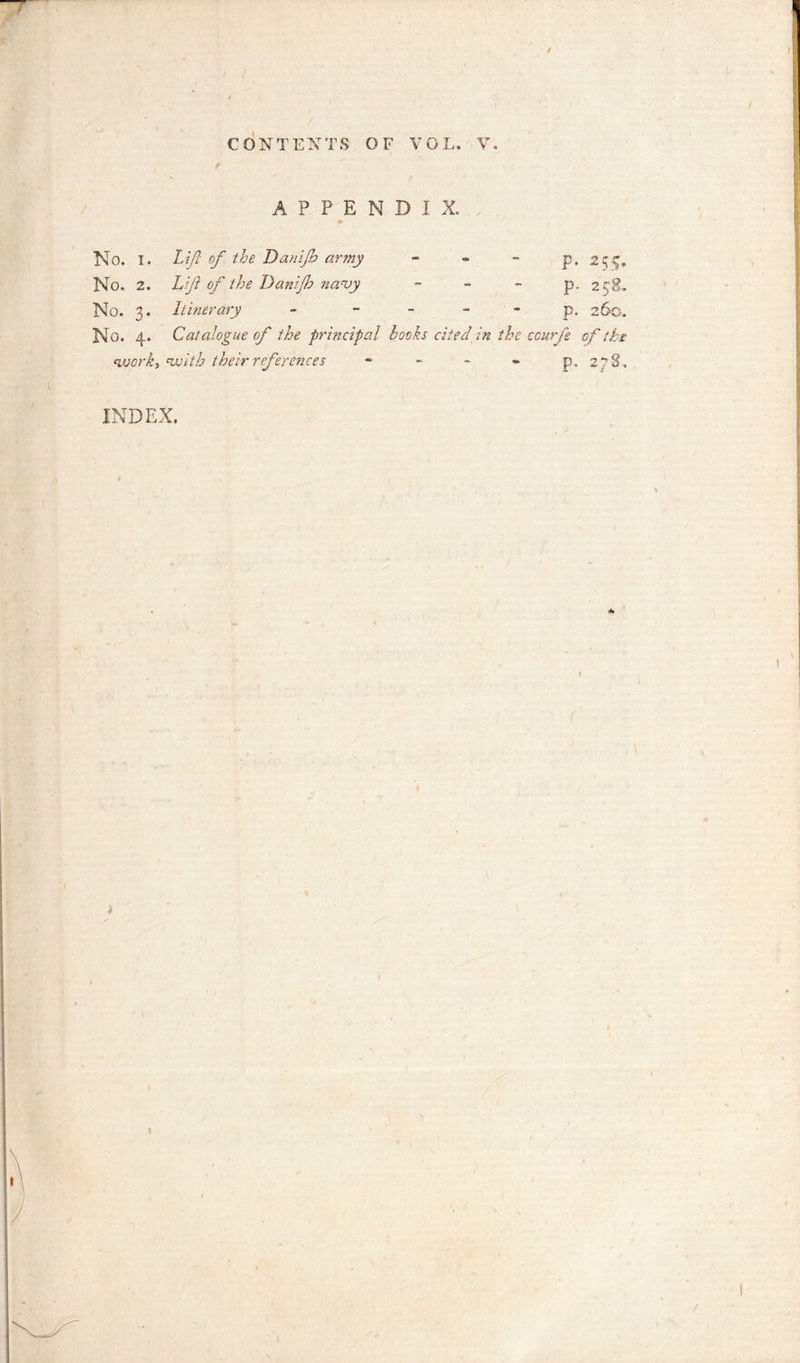 CONTENTS OF VOL. V.
APPENDIX.
No. 1. Liſt of the Daniſh army - - - p. 255.
No. 2. Liſt of the Daniſh navy - - - p. 258.
No. 3. Itinerary - - - - - p. 260.
No. 4. Catalogue of the principal books cited in the courſe of the
work, with their references - - - - p. 278.
INDEX.